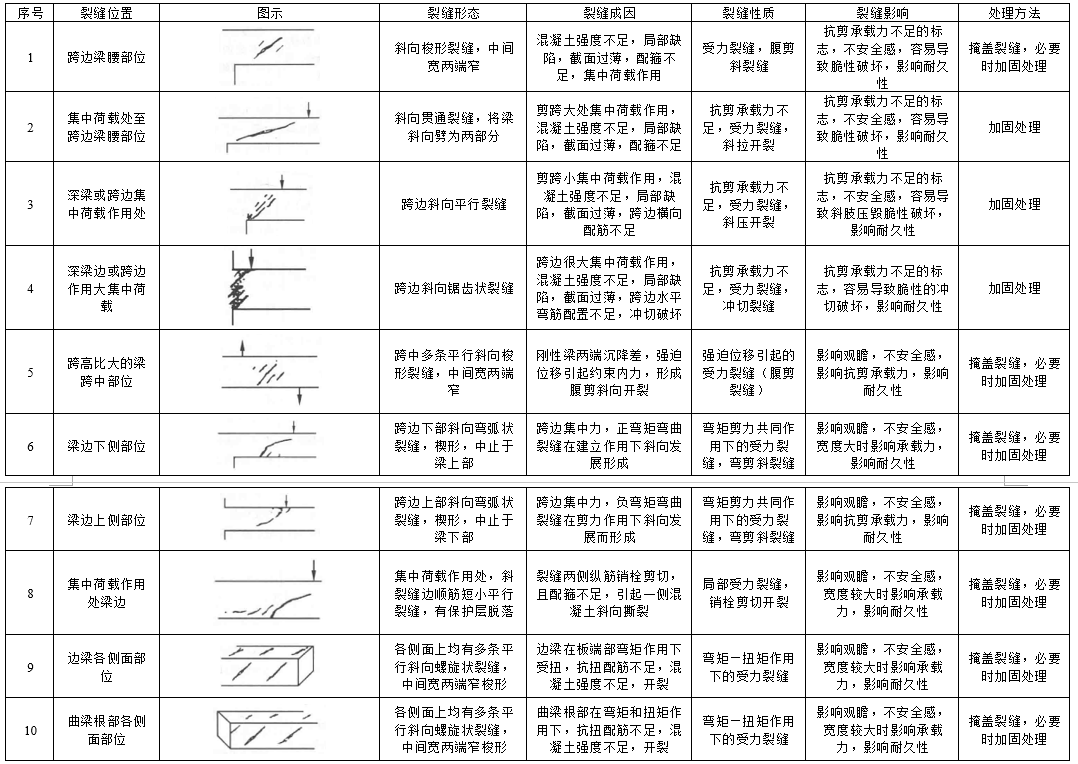 序号 裂缝位置 图示 裂缝形态 裂缝成因 裂缝性质 裂缝影响 处理方法
1
跨边梁腰部位
斜向梭形裂缝，中间
宽两端窄
混凝土强度不足，局部缺
陷，截面过薄，配箍不
足，集中荷载作用
受力裂缝，腹剪
斜裂缝
抗剪承载力不足的标
志，不安全感，容易导
致脆性破坏，影响耐久
性
掩盖裂缝，必要
时加固处理
2
集中荷载处至
跨边梁腰部位
斜向贯通裂缝，将梁
斜向劈为两部分
剪跨大处集中荷载作用，
混凝土强度不足，局部缺
陷，截面过薄，配箍不足
抗剪承载力不
足，受力裂缝，
斜拉开裂
抗剪承载力不足的标
志，不安全感，容易导
致脆性破坏，影响耐久
性
加固处理
3
深梁或跨边集
中荷载作用处
跨边斜向平行裂缝
剪跨小集中荷载作用，混
凝土强度不足，局部缺
陷，截面过薄，跨边横向
配筋不足
抗剪承载力不
足，受力裂缝，
斜压开裂
抗剪承载力不足的标
志，不安全感，容易导
致斜肢压毁脆性破坏，
影响耐久性
加固处理
4
深梁边或跨边
作用大集中荷
载
跨边斜向锯齿状裂缝
跨边很大集中荷载作用，
混凝土强度不足，局部缺
陷，截面过薄，跨边水平
弯筋配置不足，冲切破坏
抗剪承载力不
足，受力裂缝，
冲切裂缝
抗剪承载力不足的标
志，容易导致脆性的冲
切破坏，影响耐久性
加固处理
5
跨高比大的梁
跨中部位
跨中多条平行斜向梭
形裂缝，中间宽两端
窄
刚性梁两端沉降差，强迫
位移引起约束内力，形成
腹剪斜向开裂
强迫位移引起的
受力裂缝（腹剪
裂缝）
影响观瞻，不安全感，
影响抗剪承载力，影响
耐久性
掩盖裂缝，必要
时加固处理
6
梁边下侧部位
跨边下部斜向弯弧状
裂缝，楔形，中止于
梁上部
跨边集中力，正弯矩弯曲
裂缝在建立作用下斜向发
展形成
弯矩剪力共同作
用下的受力裂
缝，弯剪斜裂缝
影响观瞻，不安全感，
宽度大时影响承载力，
影响耐久性
掩盖裂缝，必要
时加固处理
7
梁边上侧部位
跨边上部斜向弯弧状
裂缝，楔形，中止于
梁下部
跨边集中力，负弯矩弯曲
裂缝在剪力作用下斜向发
展而形成
弯矩剪力共同作
用下的受力裂
缝，弯剪斜裂缝
影响观瞻，不安全感，
影响抗剪承载力，影响
耐久性
掩盖裂缝，必要
时加固处理
8
集中荷载作用
处梁边
集中荷载作用处，斜
裂缝边顺筋短小平行
裂缝，有保护层脱落
裂缝两侧纵筋销栓剪切，
且配箍不足，引起一侧混
凝土斜向撕裂
局部受力裂缝，
销栓剪切开裂
影响观瞻，不安全感，
宽度较大时影响承载
力，影响耐久性
掩盖裂缝，必要
时加固处理
9
边梁各侧面部
位
各侧面上均有多条平
行斜向螺旋状裂缝，
中间宽两端窄梭形
边梁在板端部弯矩作用下
受扭，抗扭配筋不足，混
凝土强度不足，开裂
弯矩—扭矩作用
下的受力裂缝
影响观瞻，不安全感，
宽度较大时影响承载
力，影响耐久性
掩盖裂缝，必要
时加固处理
10
曲梁根部各侧
面部位
各侧面上均有多条平
行斜向螺旋状裂缝，
中间宽两端窄梭形
曲梁根部在弯矩和扭矩作
用下，抗扭配筋不足，混
凝土强度不足，开裂
弯矩—扭矩作用
下的受力裂缝
影响观瞻，不安全感，
宽度较大时影响承载
力，影响耐久性
掩盖裂缝，必要
时加固处理